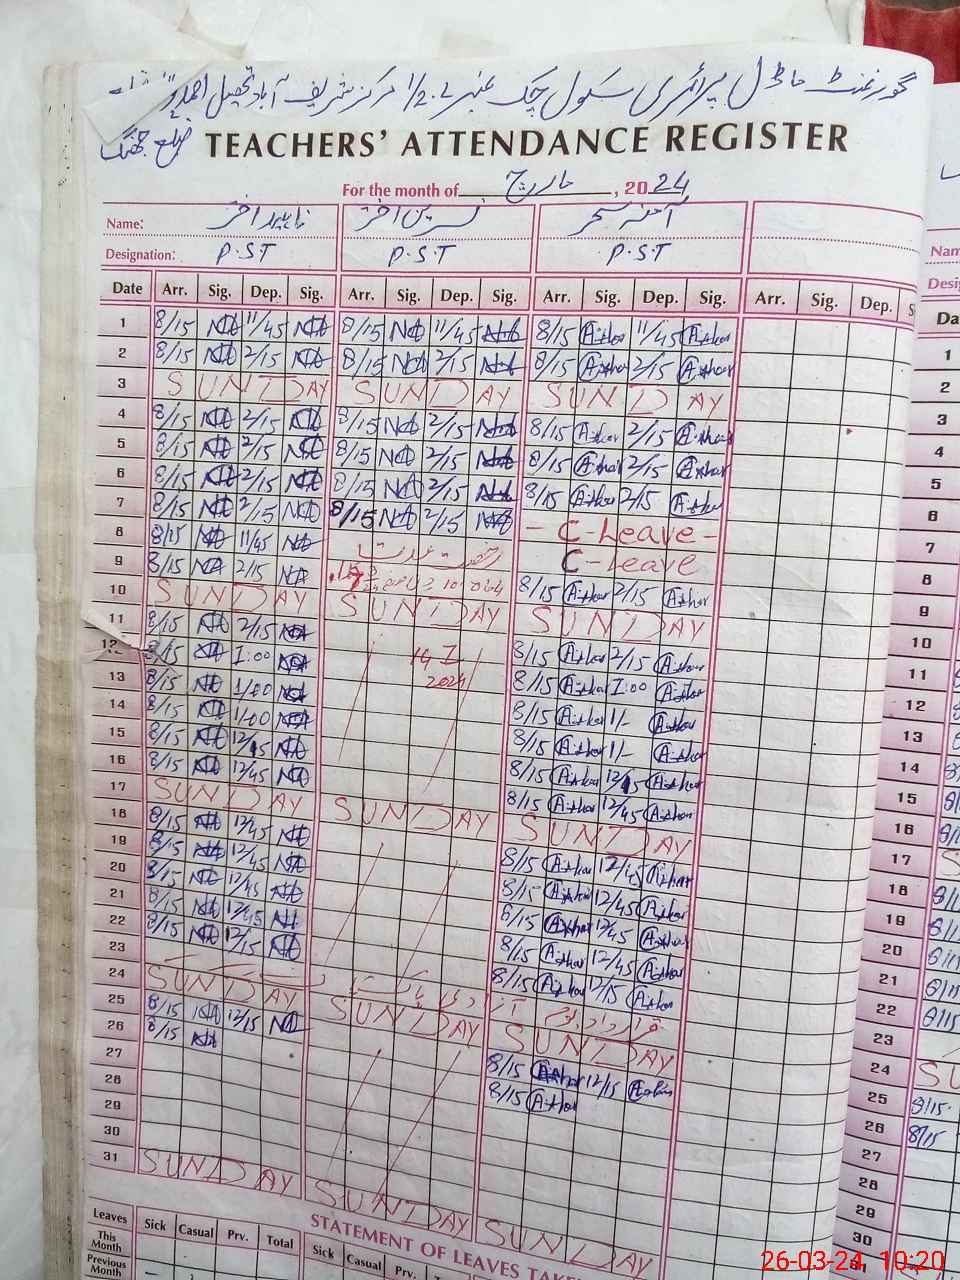 گورنمنٹ ماڈل پرائمری سکول چک نمبر 1/2.L مرکز شریف آباد تحصیل احمد پور سیال
ضلع جھنگ
TEACHERS' ATTENDANCE REGISTER
For the month of مارچ, 2024
Name: ناہید اختر نسرین اختر آمنہ سحر
Designation: P.S.T P.S.T P.S.T
Date Arr. Sig. Dep. Sig. Arr. Sig. Dep. Sig. Arr. Sig. Dep. Sig. Arr. Sig. Dep.
1 8/15 NA 11/45 NA 8/15 NA 11/45 8/15 Athar 11/45 Athar
2 8/15 NA 2/15 NA 8/15 NA 2/15 8/15 Athar 2/15 Athar
3 SUNDAY SUNDAY SUNDAY
4 8/15 NA 2/15 NA 8/15 NA 2/15 8/15 Athar 2/15 Athar
5 8/15 NA 2/15 NA 8/15 NA 2/15 8/15 Athar 2/15 Athar
6 8/15 NA 2/15 NA 8/15 NA 2/15 8/15 Athar 2/15 Athar
7 8/15 NA 2/15 NA 8/15 NA 2/15 - C-Leave -
8 8/15 NA 11/45 NA رخصت عدت C-Leave
9 8/15 NA 2/15 NA 8/15 Athar 2/15 Athar
10 SUNDAY SUNDAY SUNDAY
11 8/15 NA 2/15 NA 8/15 Athar 2/15 Athar
12 8/15 NA 1:00 NA 2024 8/15 Athar 1:00 Athar
13 8/15 NA 1/00 NA 8/15 Athar 1/- Athar
14 8/15 NA 1/00 NA 8/15 Athar 1/- Athar
15 8/15 NA 12/15 NA 8/15 Athar 12/15 Athar
16 8/15 NA 12/45 NA 8/15 Athar 12/45 Athar
17 SUNDAY SUNDAY SUNDAY
18 8/15 NA 12/45 NA 8/15 Athar 12/45 Athar
19 8/15 NA 12/45 NA 8/15 Athar 12/45 Athar
20 8/15 NA 12/45 NA 8/15 Athar 12/45 Athar
21 8/15 NA 12/45 NA 8/15 Athar 12/45 Athar
22 8/15 NA 12/15 NA 8/15 Athar 12/15 Athar
23
24 SUNDAY SUNDAY SUNDAY
25 8/15 NA 12/15 NA 8/15 Athar 12/15
26 8/15 NA 8/15 Athar
27
28
29
30
31 SUNDAY SUNDAY SUNDAY
STATEMENT OF LEAVES
Leaves Sick Casual Prv. Total Sick Casual Prv.
This Month
Previous Month
Da
1
2
3
4
5
6
7
8
9
10
11
12
13
14
15
16
17
18
19
20
21
22
23
24
25 8/15
26 8/15
27
28
29
30
26-03-24, 10:20